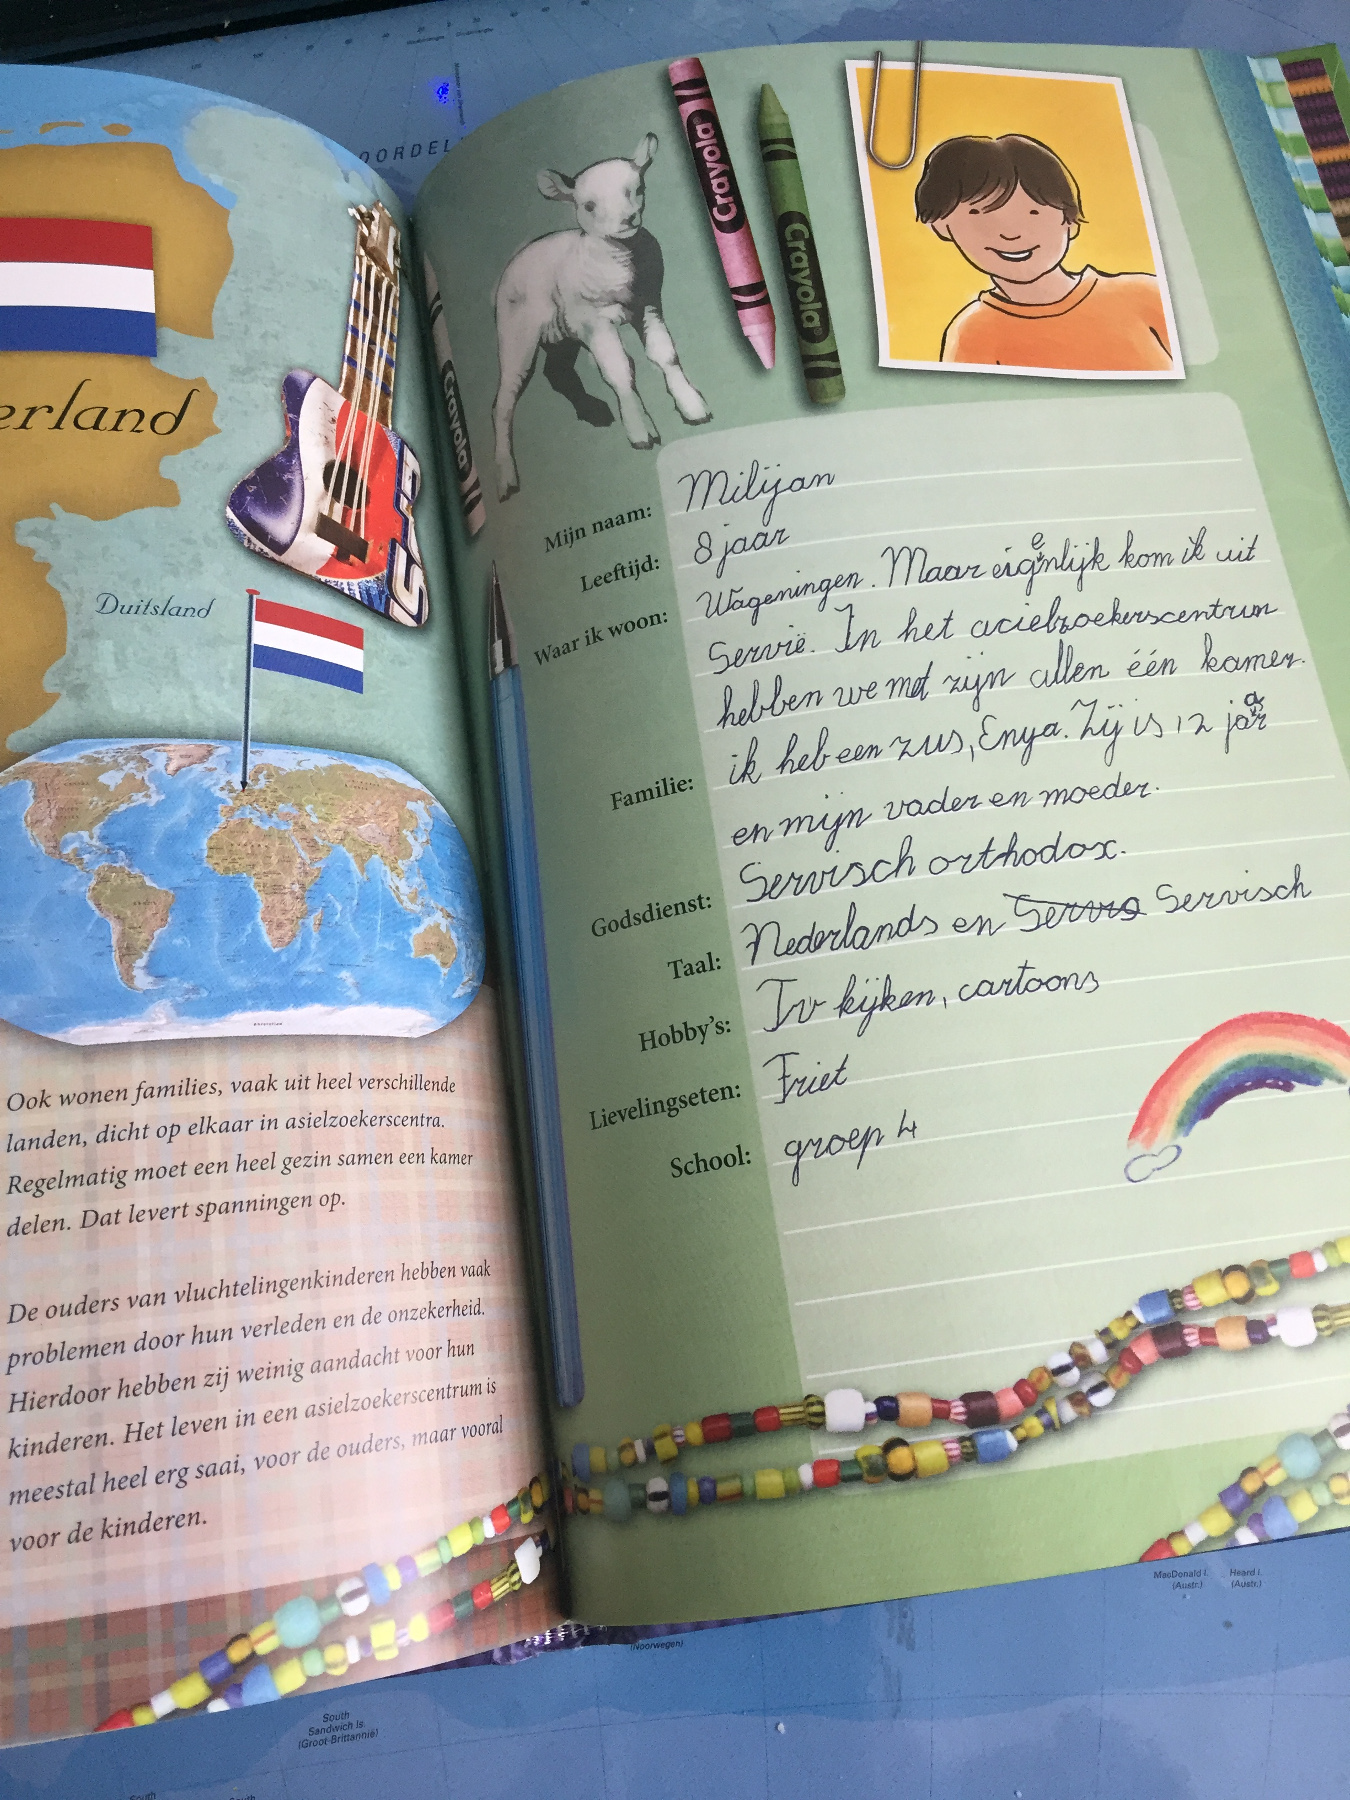 OORDEL
erland
Duitsland
Ook wonen families, vaak uit heel verschillende
landen, dicht op elkaar in asielzoekerscentra.
Regelmatig moet een heel gezin samen een kamer
delen. Dat levert spanningen op.
De ouders van vluchtelingenkinderen hebben vaak
problemen door hun verleden en de onzekerheid.
Hierdoor hebben zij weinig aandacht voor hun
kinderen. Het leven in een asielzoekerscentrum is
meestal heel erg saai, voor de ouders, maar vooral
voor de kinderen.
Crayola
Crayola
Crayola
Mijn naam: Milijan
Leeftijd: 8 jaar
Waar ik woon: Wageningen. Maar eigenlijk kom ik uit
Servië. In het acielzoekerscentrum
hebben we met zijn allen één kamer.
Familie: ik heb een zus, Enya. Zij is 12 jaar
en mijn vader en moeder.
Godsdienst: Servisch orthodox.
Taal: Nederlands en Servro Servisch
Hobby's: Tv kijken, cartoons
Lievelingseten: Friet
School: groep 4
MacDonald I.
(Austr.)
Heard I.
(Austr.)
(Noorwegen)
South
Sandwich Is.
(Groot-Brittannië)
South
South